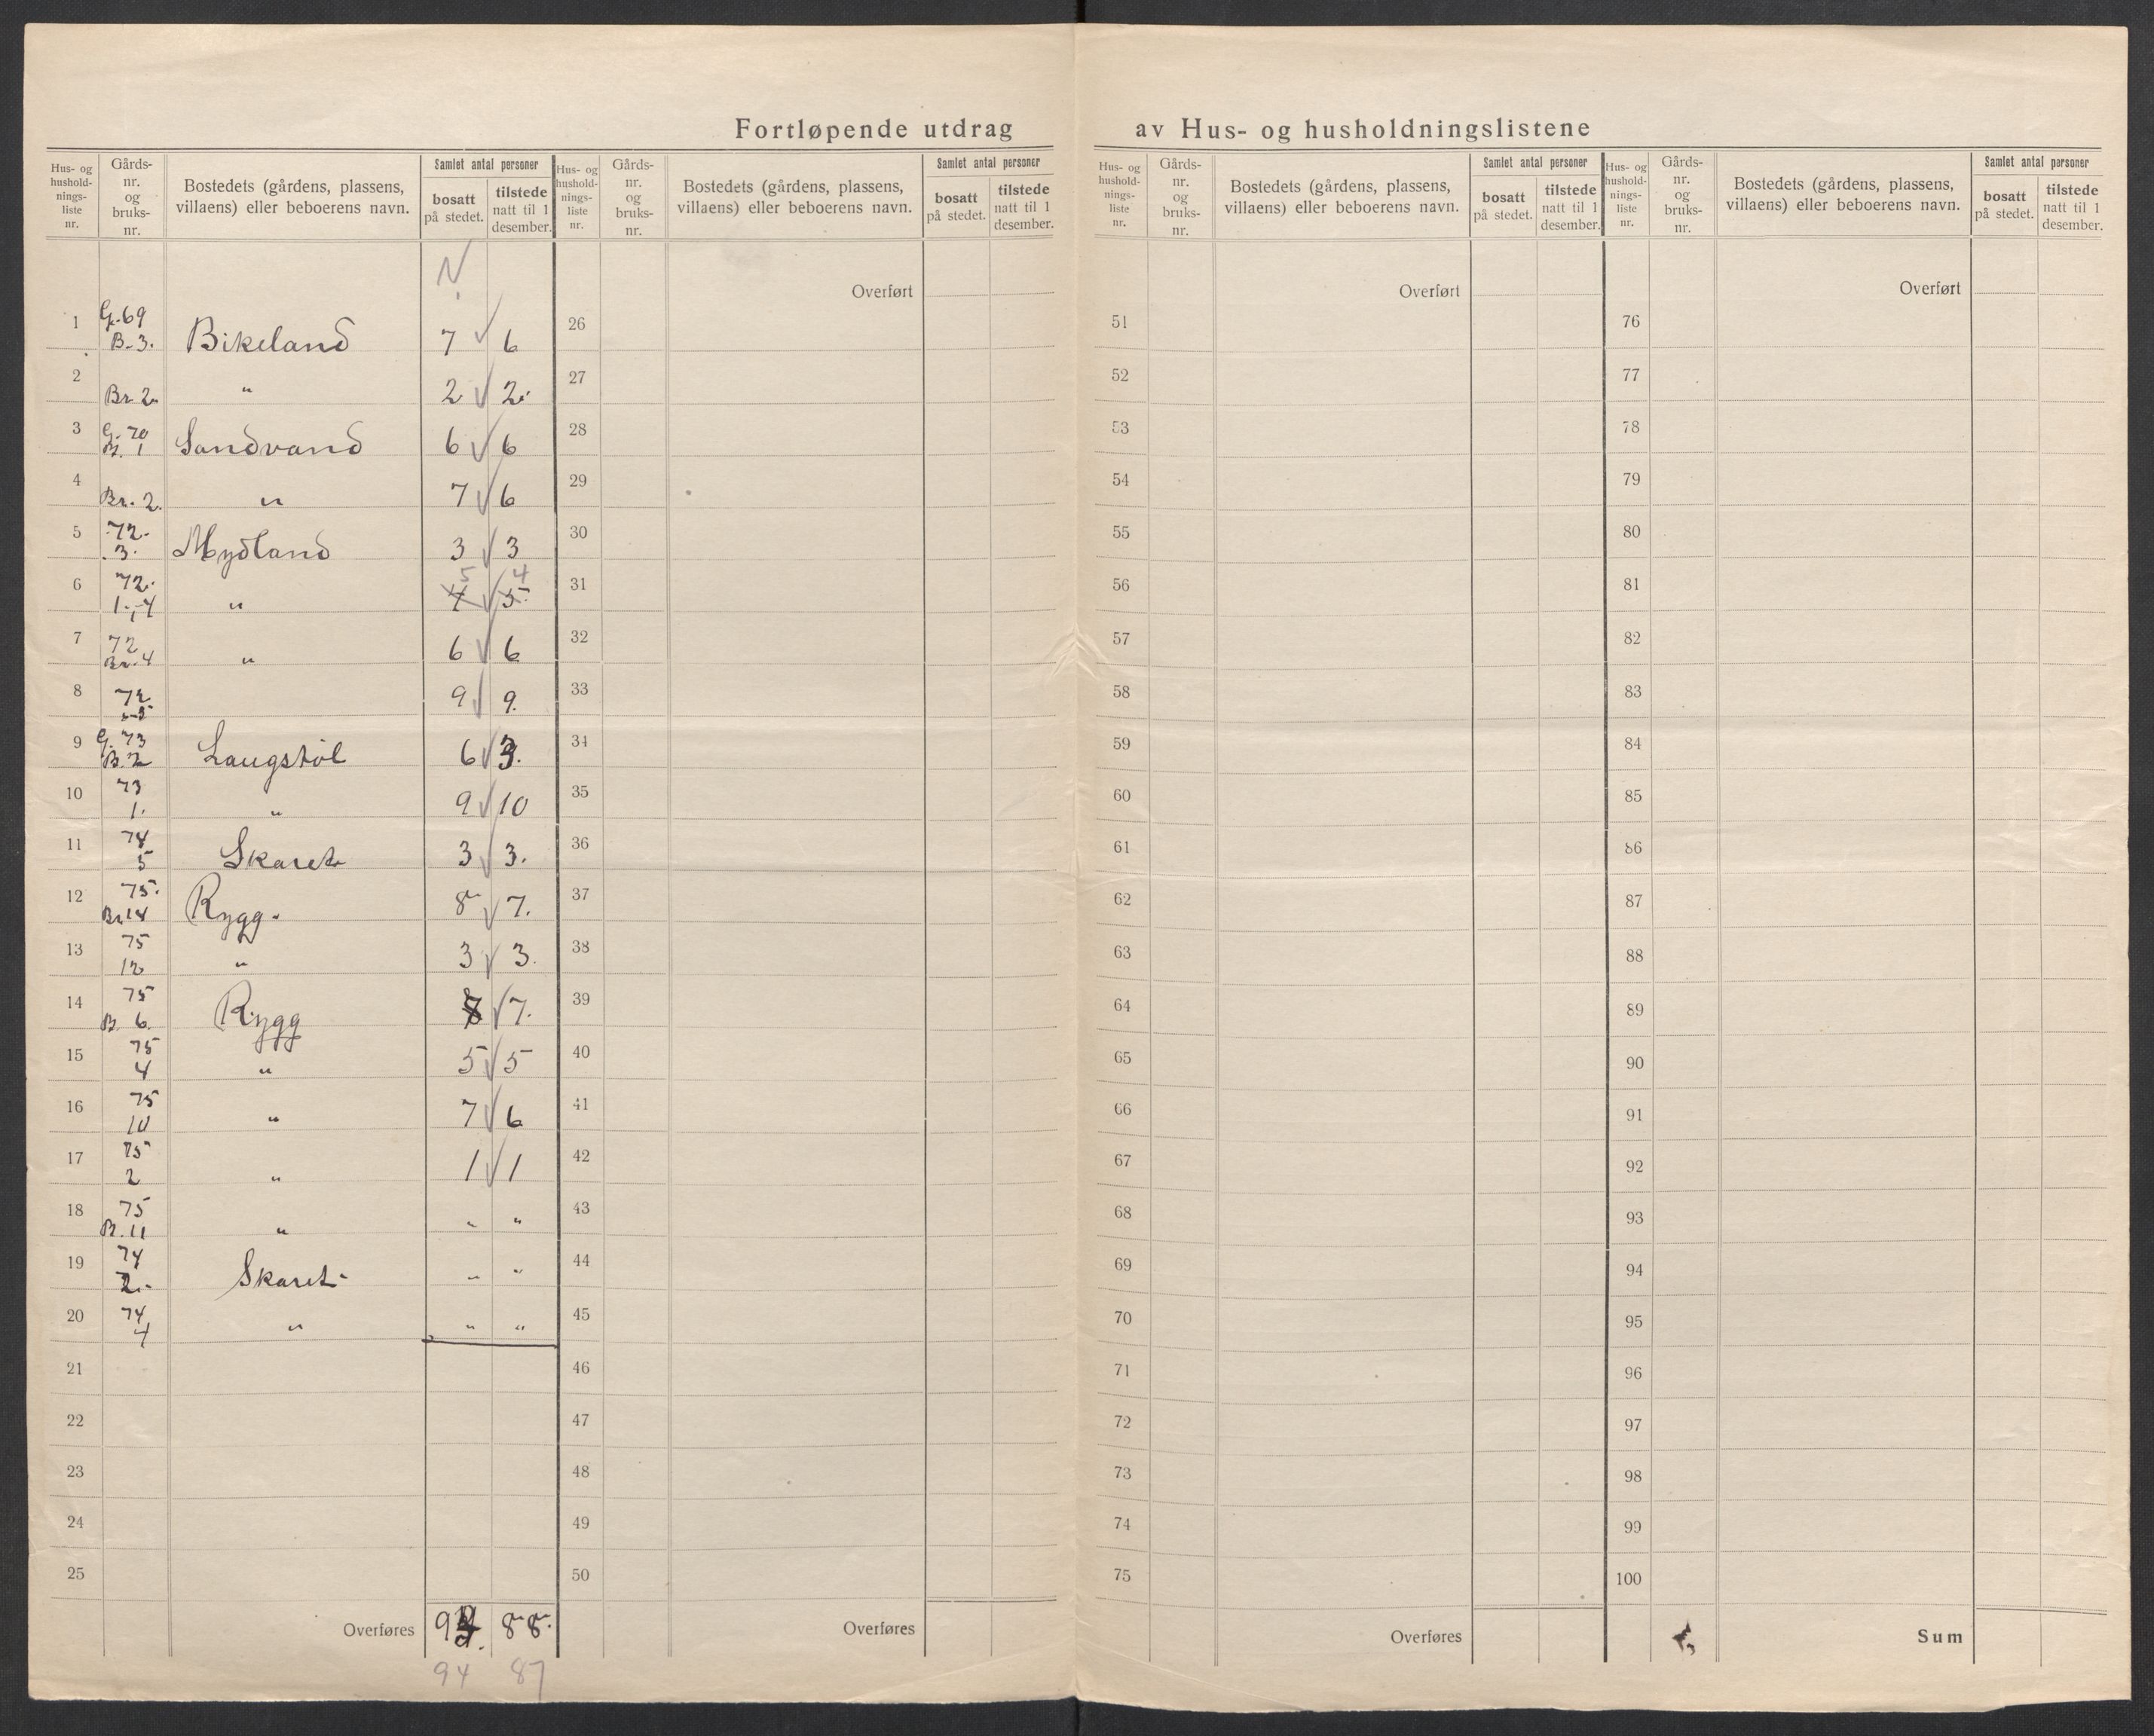 Fortløpende utdrag av Hus- og husholdningslistene
Hus- og hushold-nings-liste nr. Gårds-nr. og bruks-nr. Bostedets (gårdens, plassens, villaens) eller beboerens navn. Samlet antal personer bosatt på stedet. tilstede natt til 1 desember.
Hus- og hushold-nings-liste nr. Gårds-nr. og bruks-nr. Bostedets (gårdens, plassens, villaens) eller beboerens navn. Samlet antal personer bosatt på stedet. tilstede natt til 1 desember.
Hus- og hushold-nings-liste nr. Gårds-nr. og bruks-nr. Bostedets (gårdens, plassens, villaens) eller beboerens navn. Samlet antal personer bosatt på stedet. tilstede natt til 1 desember.
Hus- og hushold-nings-liste nr. Gårds-nr. og bruks-nr. Bostedets (gårdens, plassens, villaens) eller beboerens navn. Samlet antal personer bosatt på stedet. tilstede natt til 1 desember.
Overført Overført Overført
1 G. 69 B. 3. Bikeland 7 6 26 51 76
2 Br. 2. " 2 2. 27 52 77
3 G. 70 B. 1 Sandvand 6 6 28 53 78
4 Br. 2. " 7 6 29 54 79
5 72. 3. Mydland 3 3 30 55 80
6 72. 1-,4 " 5 4 5. 31 56 81
7 72 Br. 4 " 6 6 32 57 82
8 72 9 9. 33 58 83
9 G. 73 B. 2 Laugstöl 6 3. 34 59 84
10 73 1. " 9 10 35 60 85
11 74 5 Skaret 3 3. 36 61 86
12 75. Br. 14 Rygg. 8 7. 37 62 87
13 75 12 " 3 3. 38 63 88
14 75 B. 6. Rygg 7. 39 64 89
15 75 4 " 5 5 40 65 90
16 75 10 " 7 6 41 66 91
17 75 2 " 1 1 42 67 92
18 75 B. 11 " " " 43 68 93
19 74 2. Skaret " " 44 69 94
20 74 4 " " " 45 70 95
21 46 71 96
22 47 72 97
23 48 73 98
24 49 74 99
25 50 75 100
Overføres 88. Overføres Overføres Sum
94 87